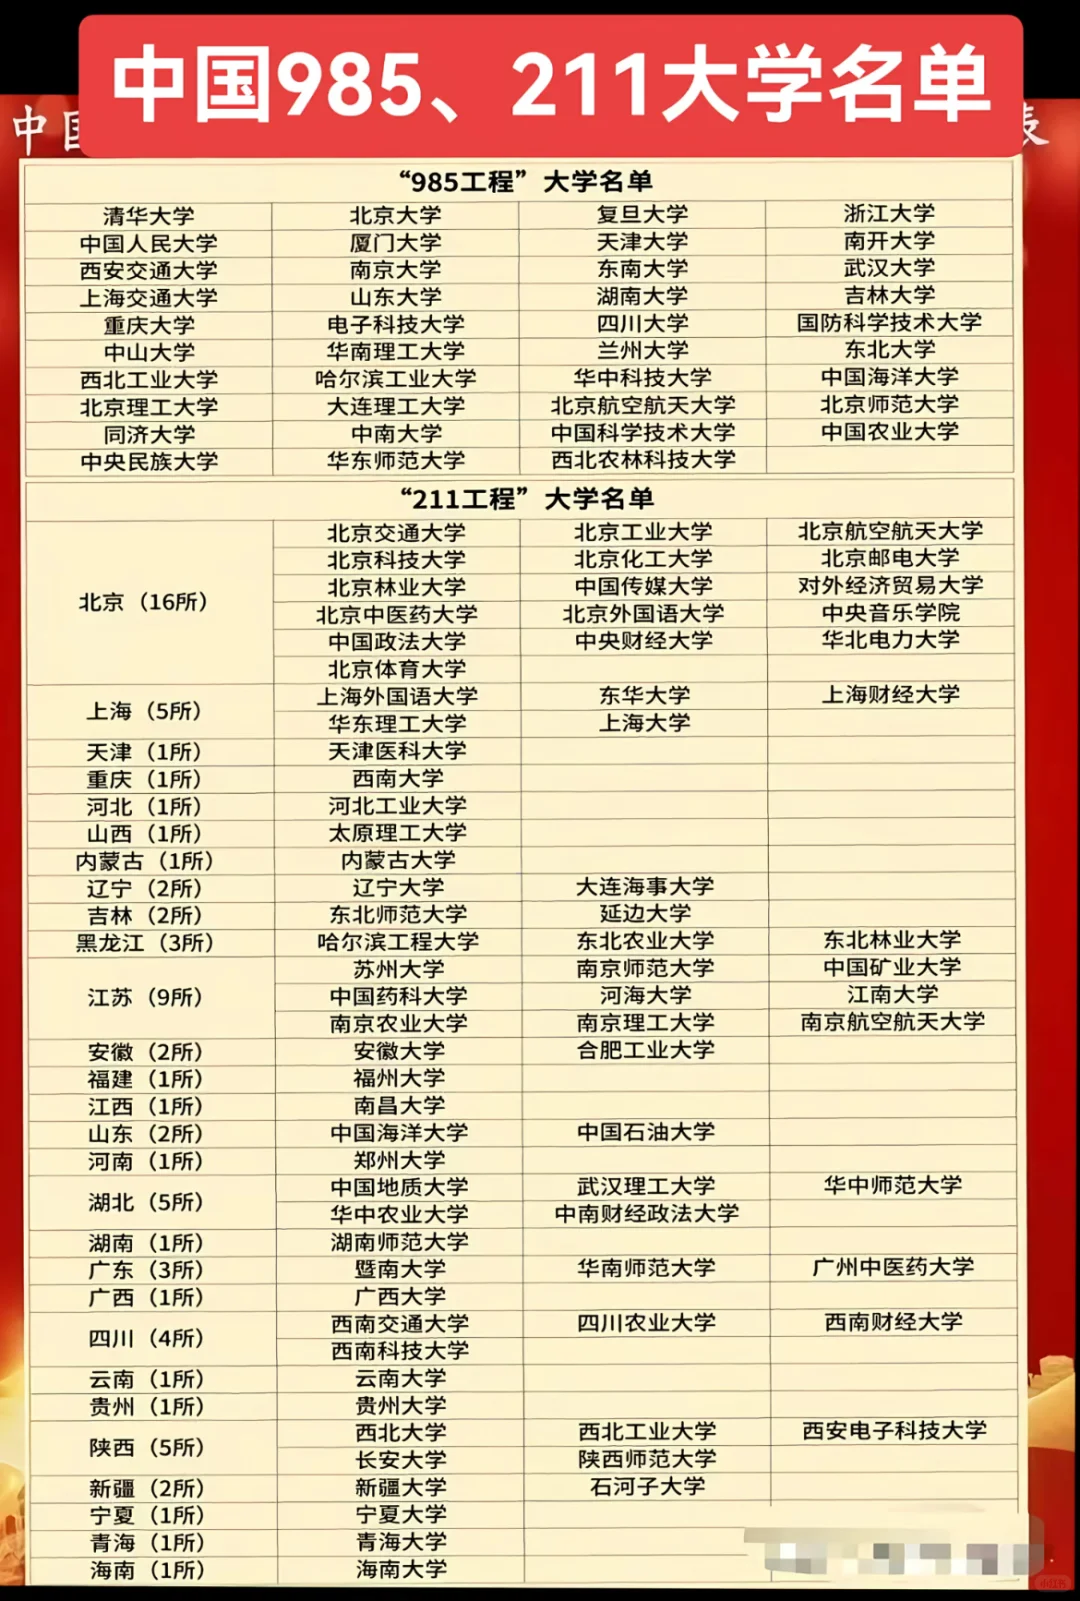 中国985、211大学名单
中国
表
“985工程”大学名单
清华大学 北京大学 复旦大学 浙江大学
中国人民大学 厦门大学 天津大学 南开大学
西安交通大学 南京大学 东南大学 武汉大学
上海交通大学 山东大学 湖南大学 吉林大学
重庆大学 电子科技大学 四川大学 国防科学技术大学
中山大学 华南理工大学 兰州大学 东北大学
西北工业大学 哈尔滨工业大学 华中科技大学 中国海洋大学
北京理工大学 大连理工大学 北京航空航天大学 北京师范大学
同济大学 中南大学 中国科学技术大学 中国农业大学
中央民族大学 华东师范大学 西北农林科技大学
“211工程”大学名单
北京（16所） 北京交通大学 北京工业大学 北京航空航天大学
北京科技大学 北京化工大学 北京邮电大学
北京林业大学 中国传媒大学 对外经济贸易大学
北京中医药大学 北京外国语大学 中央音乐学院
中国政法大学 中央财经大学 华北电力大学
北京体育大学
上海（5所） 上海外国语大学 东华大学 上海财经大学
华东理工大学 上海大学
天津（1所） 天津医科大学
重庆（1所） 西南大学
河北（1所） 河北工业大学
山西（1所） 太原理工大学
内蒙古（1所） 内蒙古大学
辽宁（2所） 辽宁大学 大连海事大学
吉林（2所） 东北师范大学 延边大学
黑龙江（3所） 哈尔滨工程大学 东北农业大学 东北林业大学
江苏（9所） 苏州大学 南京师范大学 中国矿业大学
中国药科大学 河海大学 江南大学
南京农业大学 南京理工大学 南京航空航天大学
安徽（2所） 安徽大学 合肥工业大学
福建（1所） 福州大学
江西（1所） 南昌大学
山东（2所） 中国海洋大学 中国石油大学
河南（1所） 郑州大学
湖北（5所） 中国地质大学 武汉理工大学 华中师范大学
华中农业大学 中南财经政法大学
湖南（1所） 湖南师范大学
广东（3所） 暨南大学 华南师范大学 广州中医药大学
广西（1所） 广西大学
四川（4所） 西南交通大学 四川农业大学 西南财经大学
西南科技大学
云南（1所） 云南大学
贵州（1所） 贵州大学
陕西（5所） 西北大学 西北工业大学 西安电子科技大学
长安大学 陕西师范大学
新疆（2所） 新疆大学 石河子大学
宁夏（1所） 宁夏大学
青海（1所） 青海大学
海南（1所） 海南大学